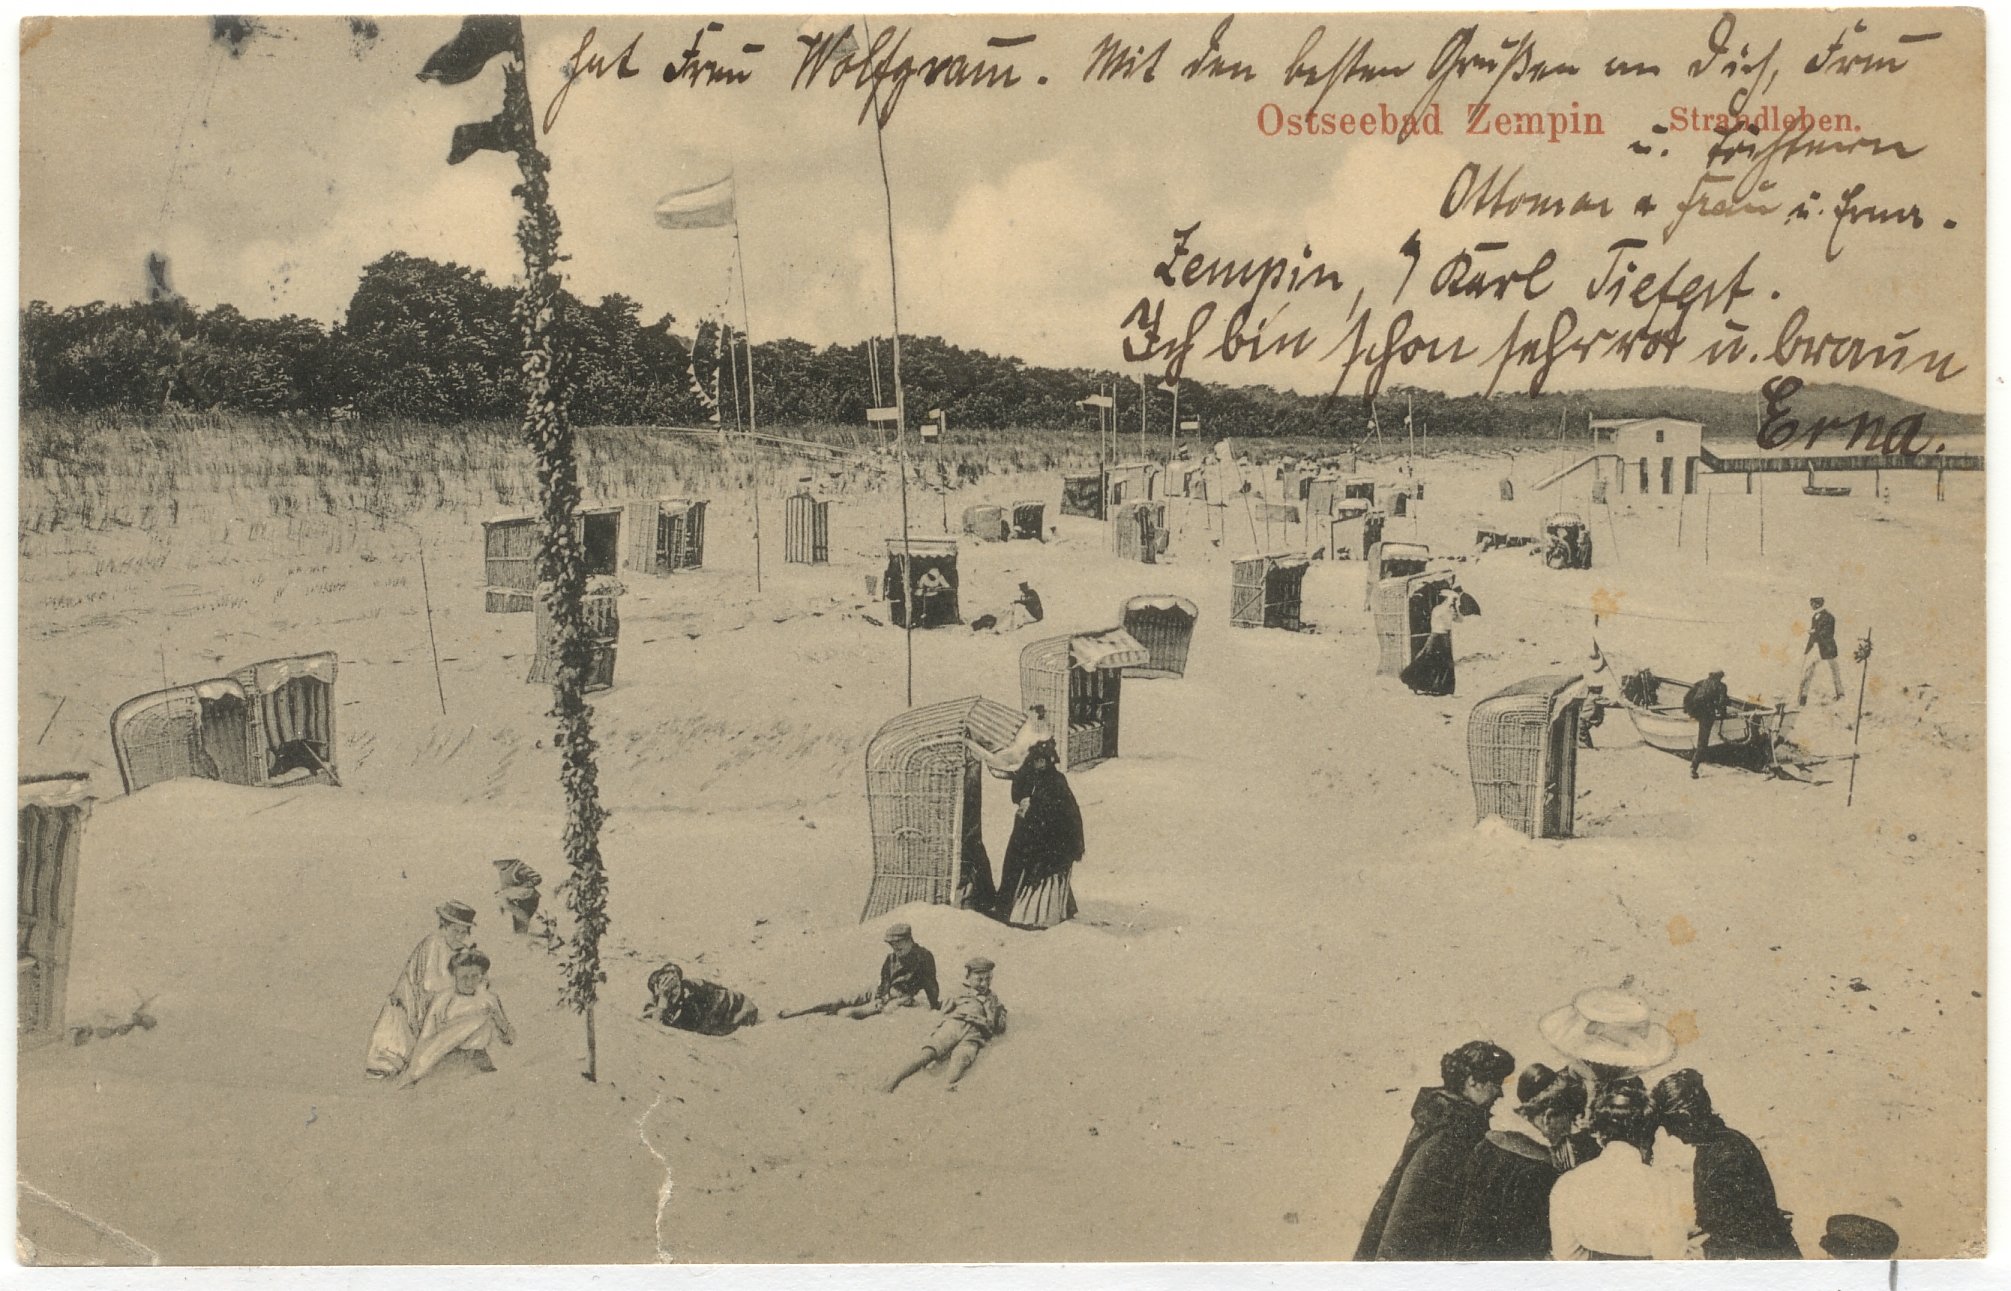 hat Frau Wolfgramm. Mit den besten Grüßen an Dich, Frau
Ostseebad Zempin Strandleben.
u. Töchtern
Ottomar u Frau u. Erna.
Zempin, Karl Tiefert.
Ich bin schon sehr rot u. braun
Erna.